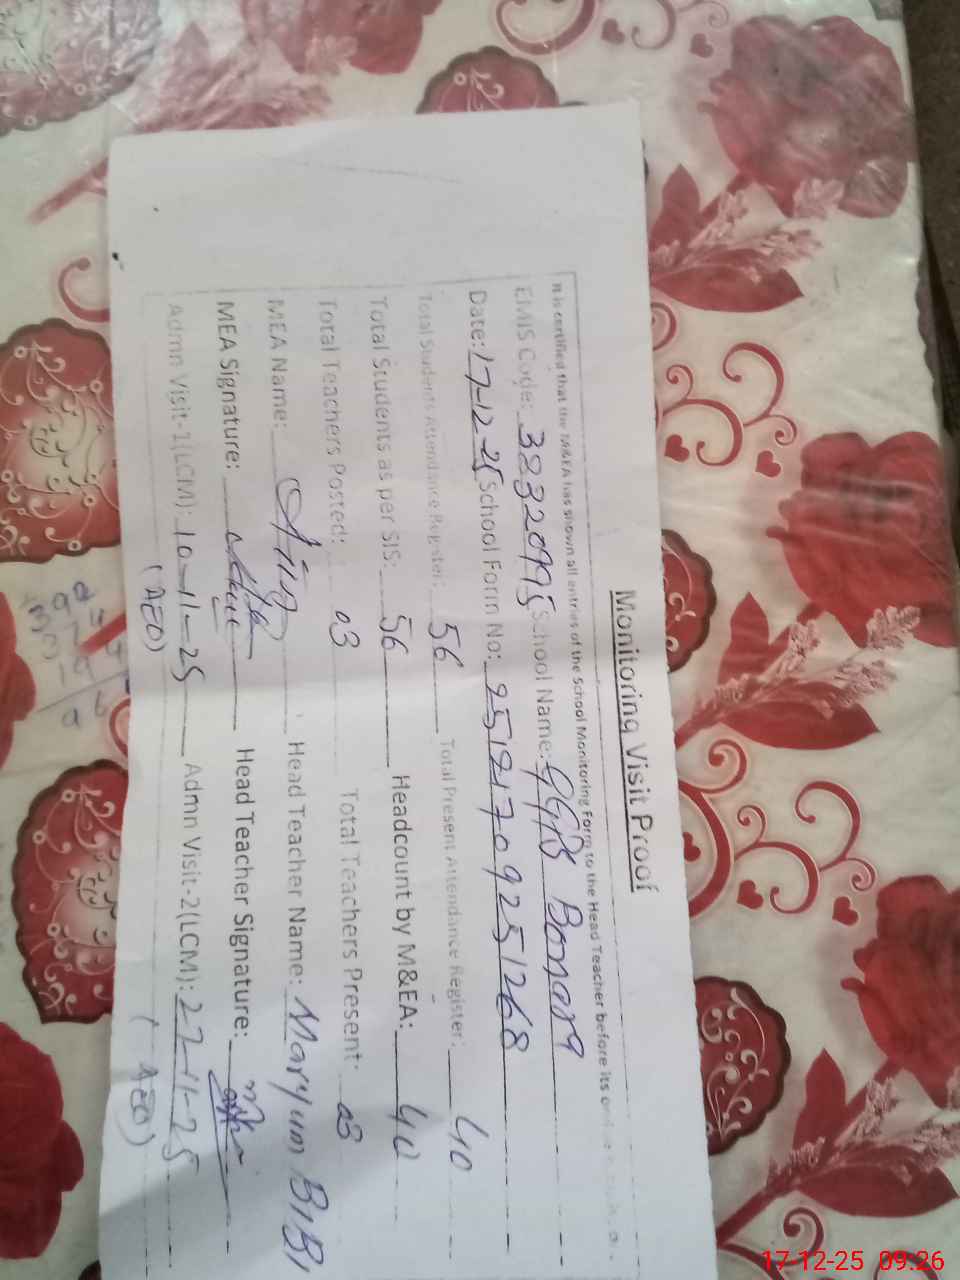 Monitoring Visit Proof
It is certified that the M&EA has shown all entries of the School Monitoring Form to the Head Teacher before its
EMIS Code: School Name: Bonara
Date: 17-12-25 School Form No: 25191709251268
Total Students Attendance Register: 56 Total Present Attendance Register: 40
Total Students as per SIS: 56 Headcount by M&EA: 40
Total Teachers Posted: 03 Total Teachers Present: 03
MEA Name: Head Teacher Name: Maryum BiBi
MEA Signature: Head Teacher Signature:
Admn Visit-1(LCM): 10-11-25 Admn Visit-2(LCM): 27-11-25
(AEO) (AEO)
17-12-25 09:26